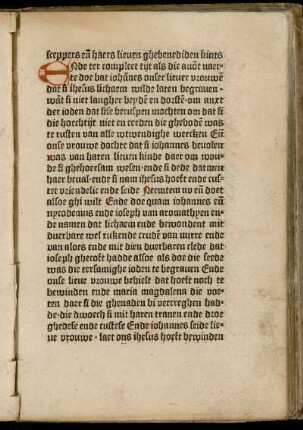 sceppers eñ haers lieuen ghebenediden kints
ENde ter compleet tijt als die auõt naer-
te doe bat iohãnes onser lieuer vrouwẽ
dat si ihesus lichaem wilde laten begrauen·
wãt si niet langher beydẽ en dorstẽ·om anxt
der ioden dat sise beruspen mochten om dat si
die hoechtijt niet en eerden die ghebodẽ was
te rusten van alle wtwendighe wercken Eñ
onse vrouwe dochte dat si iohannes beuolen
was van haren lieuen kinde daer om wou-
de si ghehoersam wesen·ende si dede dat men
haer beual·ende si nam ihesus hoeft ende cus-
tet vriendelic ende seide Neemten nv eñ doet
alsoe ghi wilt Ende doe quam iohannes eñ
nycodemus ende ioseph van aromathyen en-
de namen dat lichaem ende bewondent mit
duerbare wel rukende crude van mirre ende
van aloes ende mit dien duerbaren clede dat
ioseph ghecoft hadde alsoe als doe die sede
was die eersamighe ioden te begrauen Ende
onse lieue vrouwe behielt dat hoeft noch te
bewinden ende maria magdalena die voe-
ten daer si die ghenaden bi vercreghen had-
de·die dwoech si mit haren tranen ende droe
ghedese ende custese Ende iohannes seide lie-
ue vrouwe · laet ons ihesus hoeft bewinden